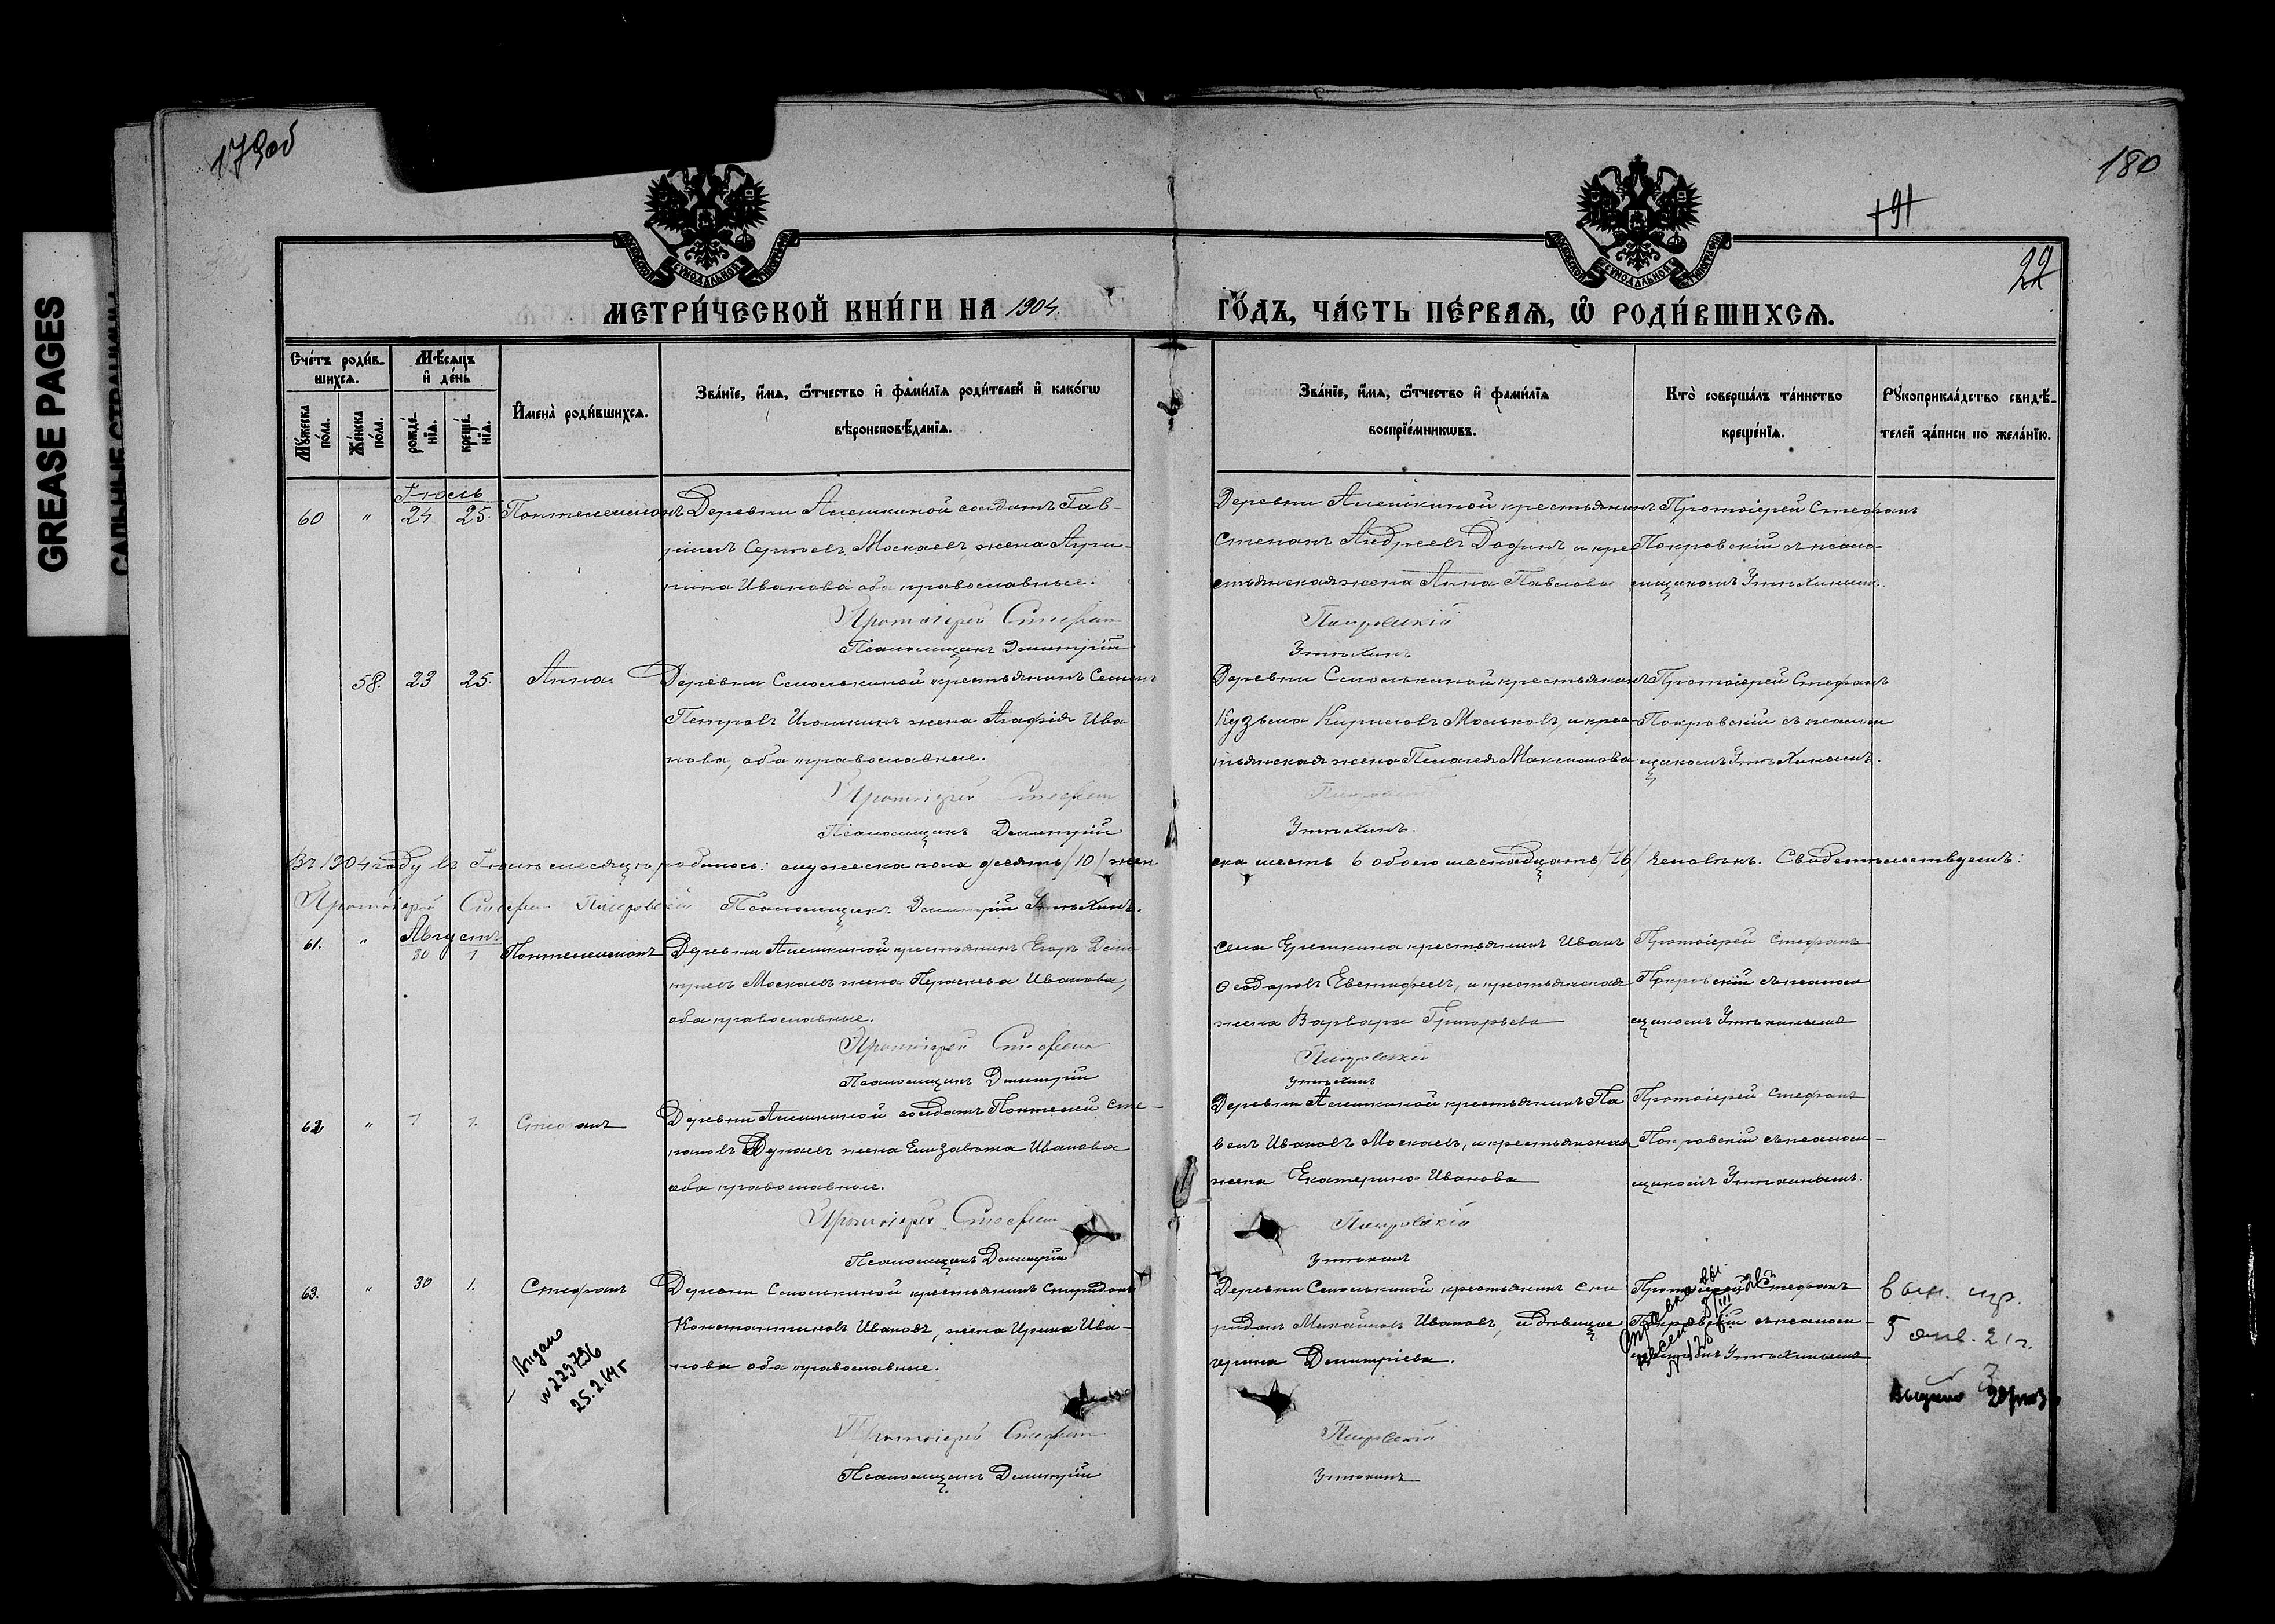 GREASE PAGES
САЛЬНЫЕ СТРАНИЦЫ
179об
180
191
22
МЕТРИ́ЧЕСКОЙ КНИ́ГИ НА 1904.
ГО́ДЪ, ЧА́СТЬ ПЕ́РВАѦ, Ѡ҆ РОДИ́ВШИХСѦ.
Сче́тъ роди́вшихсѧ.
Мѣ́сѧцъ и҆ де́нь
Мꙋ́жеска по́ла.
Же́нска по́ла.
рожде́нїѧ.
креще́нїѧ.
И҆мена̀ роди́вшихсѧ.
Зва́нїе, и҆́мѧ, ѻ҆́тчество и҆ фами́лїѧ роди́телей и҆ како́гѡ
вѣроисповѣ́данїѧ.
Зва́нїе, и҆́мѧ, ѻ҆́тчество и҆ фами́лїѧ
воспрїе́мникѡвъ.
Кто̀ соверша́лъ та́инство
креще́нїѧ.
Рꙋкоприкла́дство свидѣ́-
телей за́писи по жела́нїю.
Іюль
60 " 24 25. Пантелеимонъ Деревни Алешкиной солдатъ Гав-
риилъ Сергѣевъ Москаевъ, жена Агри-
пина Иванова оба православные.
Протоіерей Стефан
Псаломщикъ Димитрій
Деревни Алешкиной крестьянинъ
Степанъ Андреевъ , и кре
стьянская жена Анна Павлова
Покровскій
Утѣхинъ.
Протоіерей Стефанъ
Покровскій съ псало-
мщикомъ Утѣхинымъ.
58. 23 25. Анна Деревни Смолькиной крестьянинъ Семенъ
Петровъ жена Агафія Ива
нова, оба православные.
Протоіерей Стефан
Псаломщикъ Димитрій
Деревни Смолькиной крестьянинъ
Кузьма Кириловъ Моськовъ, и крес-
тьянская жена Пелагея Максимова
Покровскій
Утѣхинъ.
Протоіерей Стефанъ
Покровскій съ псалом
щикомъ Утѣхинымъ.
Въ 1904 году въ Іюлѣ месяцѣ родилось: мужеска пола десять /10/ жен
ска шесть 6 обоего шеснадцать /16/ человѣкъ. Свидетельствуемъ:
Протоіерей Стефан Покровскій Псаломщикъ Димитрій Утѣхинъ.
Августъ
61. " 30 1 Пантелеимонъ Деревни Алешкиной крестьянинъ Егоръ Дми
тріевъ Москаевъ жена Параскева Иванова,
оба православные.
Протоіерей Стефан
Псаломщикъ Димитрій
села крестьянинъ Иванъ
Ѳедоровъ , и крестьянская
жена Варвара Григорьева
Покровскій
Утѣхинъ
Протоіерей Стефанъ
Покровскій съ псалом
щикомъ Утѣхинымъ
62 " 1 1. Стефанъ Деревни Алешкиной солдатъ Пантелей Сте-
пановъ Дунаевъ жена Елизавета Иванова
оба православные.
Протоіерей Стефан
Псаломщикъ Димитрій
Деревни Алешкиной крестьянинъ Па
велъ Ивановъ Москаевъ, и крестьянская
жена Екатерина Иванова
Покровскій
Утѣхинъ
Протоіерей Стефанъ
Покровскій съ псалом-
щикомъ Утѣхинымъ.
63. " 30 1. Стефанъ Деревни Смолькиной крестьянинъ Спиридонъ
Константиновъ Ивановъ, жена Ирина Ива-
нова оба православные.
Протоіерей Стефан
Псаломщикъ Димитрій
Деревни Смолькиной крестьянинъ Спи
ридонъ Михайловъ Ивановъ, и
Димитріева.
Покровскій
Утѣхинъ
Протоіерей Стефанъ
Покровскій съ псалом-
щикомъ Утѣхинымъ
Выдано
25.2.
вып.
5 янв. 21 г.
Выдано